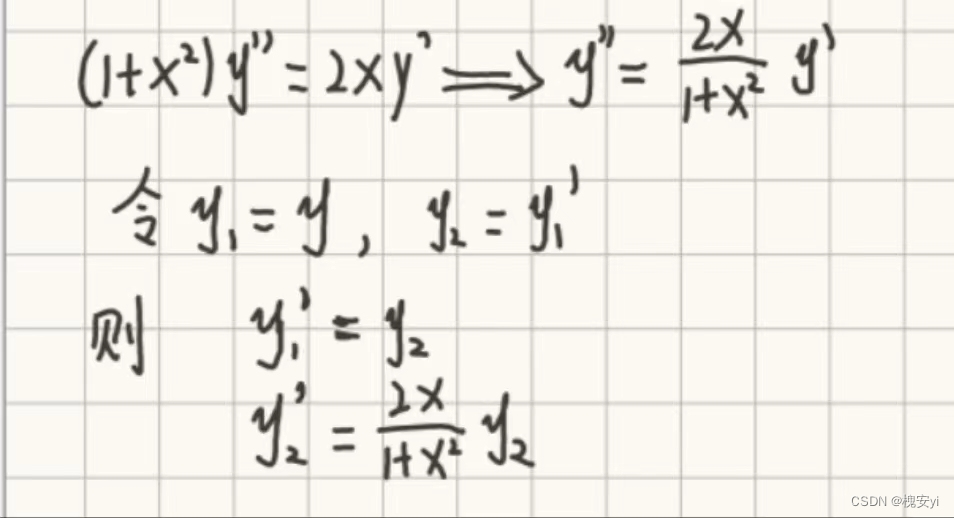 (1+x²)y''=2xy' ⟹ y''=\frac{2x}{1+x²}y'
令 y₁=y, y₂=y₁'
则 y₁'=y₂
y₂'=\frac{2x}{1+x²}y₂
CSDN @槐安yi